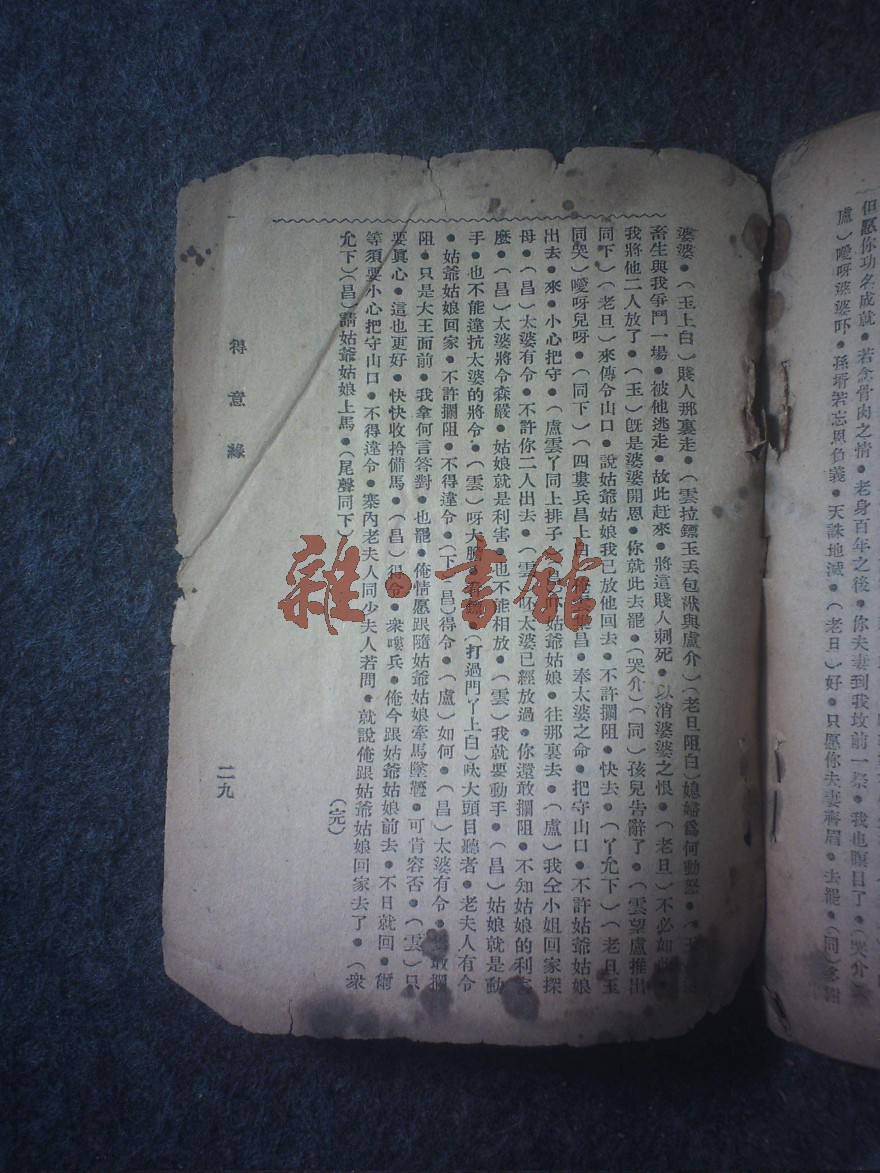 但愿你功名成就•若念骨肉之情•老身百年之後•你夫妻到我坟前一祭•我也瞑目了•(哭介
盧)噯呀婆婆吓•孫壻若忘恩負義•天誅地滅•(老旦)好•只愿你夫妻齊眉•去罷•(同)多謝
婆婆•(玉上白)賤人那裏走•(雲拉鏢玉丢包袱與盧介)(老旦阻白)媳婦爲何動怒•
畜生與我爭鬥一場•被他逃走•故此赶來•將這賤人刺死•以消婆婆之恨•(老旦)不必如此•
我將他二人放了•(玉)旣是婆婆開恩•你就此去罷•(哭介)(同)孩兒告辭了•(雲望盧推出
同下)(老旦)來傳令山口•說姑爺姑娘我已放他回去•不許攔阻•快去•(丫允下)(老旦玉
同哭)噯呀兒呀•(同下)(四嘍兵昌上白)俺 昌•奉太婆之命•把守山口•不許姑爺姑娘
出去•來•小心把守•(盧雲丫同上排子) 姑爺姑娘•往那裏去•(盧)我仝小姐回家探
母•(昌)太婆有令•不許你二人出去•(雲)呸太婆已經放過•你還敢攔阻•不知姑娘的利害
麼•(昌)太婆將令森嚴•姑娘就是利害•也不能相放•(雲)我就要動手•(昌)姑娘就是動
手•也不能違抗太婆的將令•(雲)呀大膽• (打過門丫上白)呔大頭目聽者•老夫人有令
•姑爺姑娘回家•不許攔阻•不得違令•(下)(昌)得令•(盧)如何•(昌)太婆有令• 敢攔
阻•只是大王面前•我拿何言答對•也罷•俺情愿跟隨姑爺姑娘牽馬墜鐙•可肯容否•(雲)只
要眞心•這也更好•快快收拾備馬•(昌)得令•衆嘍兵•俺今跟姑爺姑娘前去•不日就回•爾
等須要小心把守山口•不得違令•寨內老夫人同少夫人若問•就說俺跟姑爺姑娘回家去了•(衆
允下)(昌)請姑爺姑娘上馬•(尾聲同下)
(完)
得意緣
二九
雜·書館